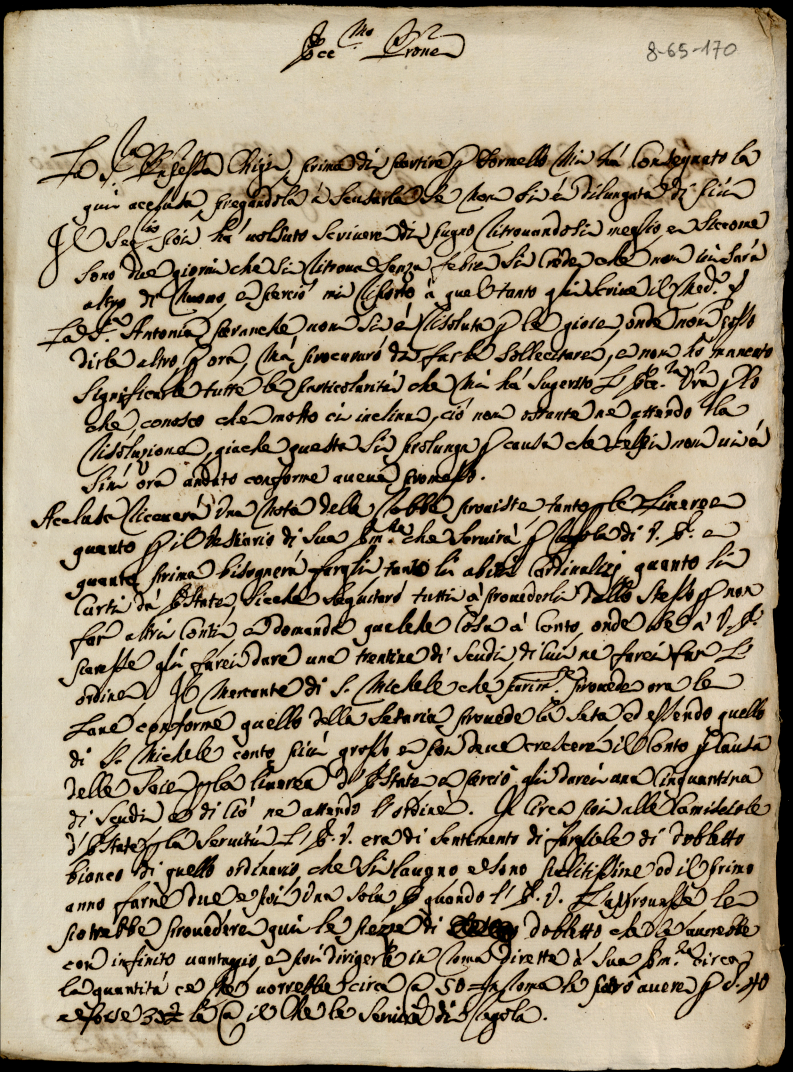 Ecc.mo Prone
8-65-170
La S.ra Prin.ssa Chigi, prima di partire p Formello mi hà Consegnato la
qui aclusa pregandola à Scusarla Se non Si è dilungata di più
Il Sig.r poi hà uolsuto Scriuere di pugno ritrouandosi meglio, e Siccome
Sono due giorni che Si ritroua Senza febre Si Crede che non ui Sarà
altro di nuouo, e perciò mi riporto à quel tanto gli Scriue il Med.o
La S.ra Antonia peranche non Si è risoluta p le gioie, onde non posso
dirle altro, p ora, mà procurarò di farla Sollecitare, e non hò mancato
Significarle tutte le particolarità che mi hà Sugerito L'Ecc.za Vra p lo
che, conosco che molto ci inclina, ciò non ostante ne attendo la
risoluzione, giache questa Si prolunga p causa che non ui è
Sin'ora andato conforme aueua promesso.
Aclusa riceuerà Una Nota delle robbe prouiste tanto p le Liuree
quanto p il Vestiario di Sua Em.za che Seruirà p regola di V. E. e
quanto prima bisognerà fargli tanto li abiti Cardinalizj quanto li
Curti dà Estate, Sicche Seguitarò tutti à prouederli dallo Stesso p non
far altri Conti, e domanda qualche Cosa à Conto, onde Se à V. E.
paresse gli farei dare una trentina di Scudi, di lui ne farei far L'
ordine, Il Mercante di S. Michele che prouede ora le
Lane conforme quello della Setaria prouede la Seta ed essendo quello
di S. Michele conto più grosso e poi deue crescere il Conto p Causa
delle Sole p la liurea d'Estate e perciò gli darei una Cinquantina
di Scudi e di ciò ne attendo l'ordine. In circa poi alle Camisciole
d'Estate p la Seruitù L'E. V. era di Sentimento di fargliele di dobletto
bianco di quello ordinario che Si laua e Sono pulitissime ed il primo
anno farne due e poi Una Sola p quando L'E. V. l'approuasse le
potrebbe prouedere qui le pezze di dobletto che le auerebbe
con infinito uantaggio e poi dirigerle in Roma dirette à Sua Em.za circa
la quantità ce ne uorrebbe circa C. 50 in Roma le potrò auere p d. 40
e forse la C. il che le Seruirà di regola.